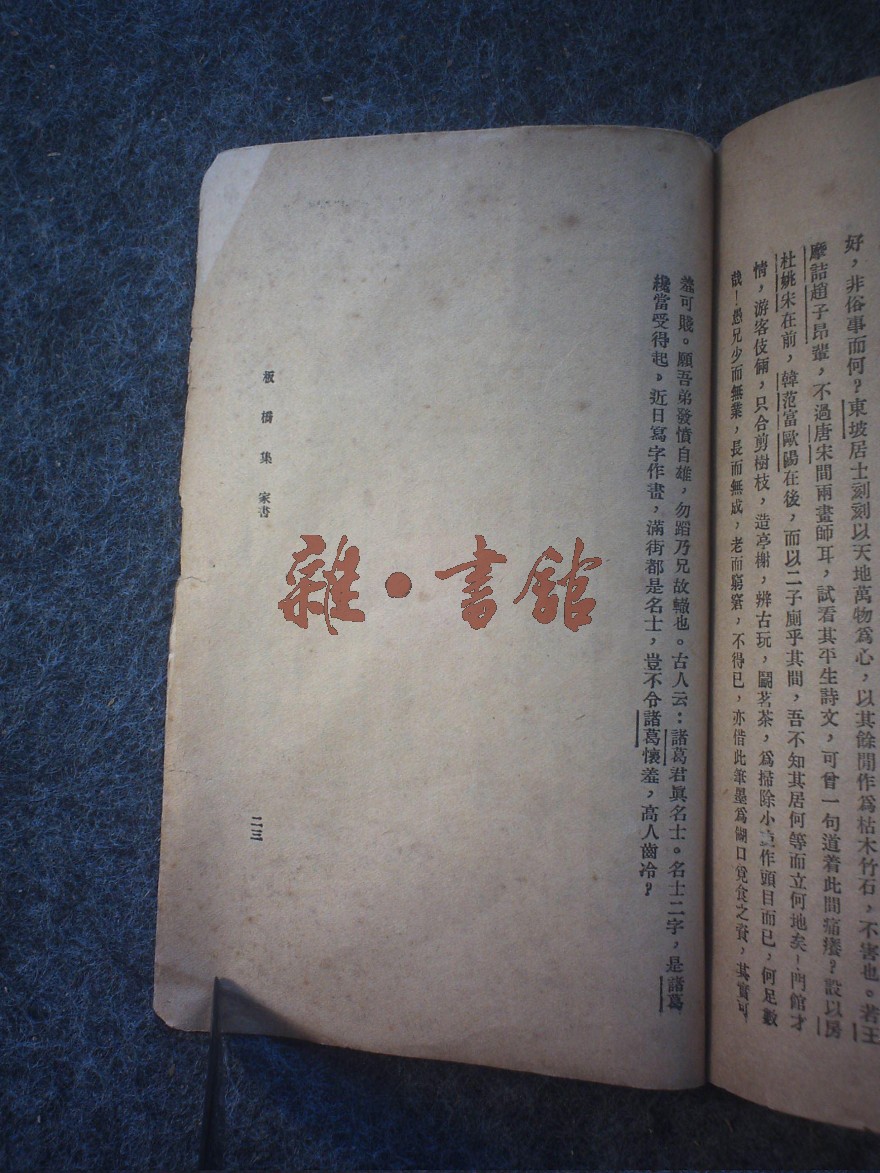 好，非俗事而何？東坡居士刻刻以天地萬物爲心，以其餘閒作爲枯木竹石，不害也。若王
摩詰趙子昂輩，不過唐宋間兩畫師耳，試看其平生詩文，可曾一句道着此間痛癢？設以房
杜姚宋在前，韓范富歐陽在後，而以二子廁乎其間，吾不知其居何等而立何地矣！門館才
情，游客伎倆，只合剪樹枝，造亭榭，辨古玩，鬭茗茶，爲掃除小吏作頭目而已，何足數
哉！愚兄少而無業，長而無成，老而窮窘，不得已，亦借此筆墨爲餬口覓食之資，其實可
羞可賤。願吾弟發憤自雄，勿蹈乃兄故轍也。古人云：諸葛君眞名士。名士二字，是諸葛
纔當受得起。近日寫字作畫，滿街都是名士，豈不令諸葛懷羞，高人齒冷？
板橋集 家書
二三
雜·書館